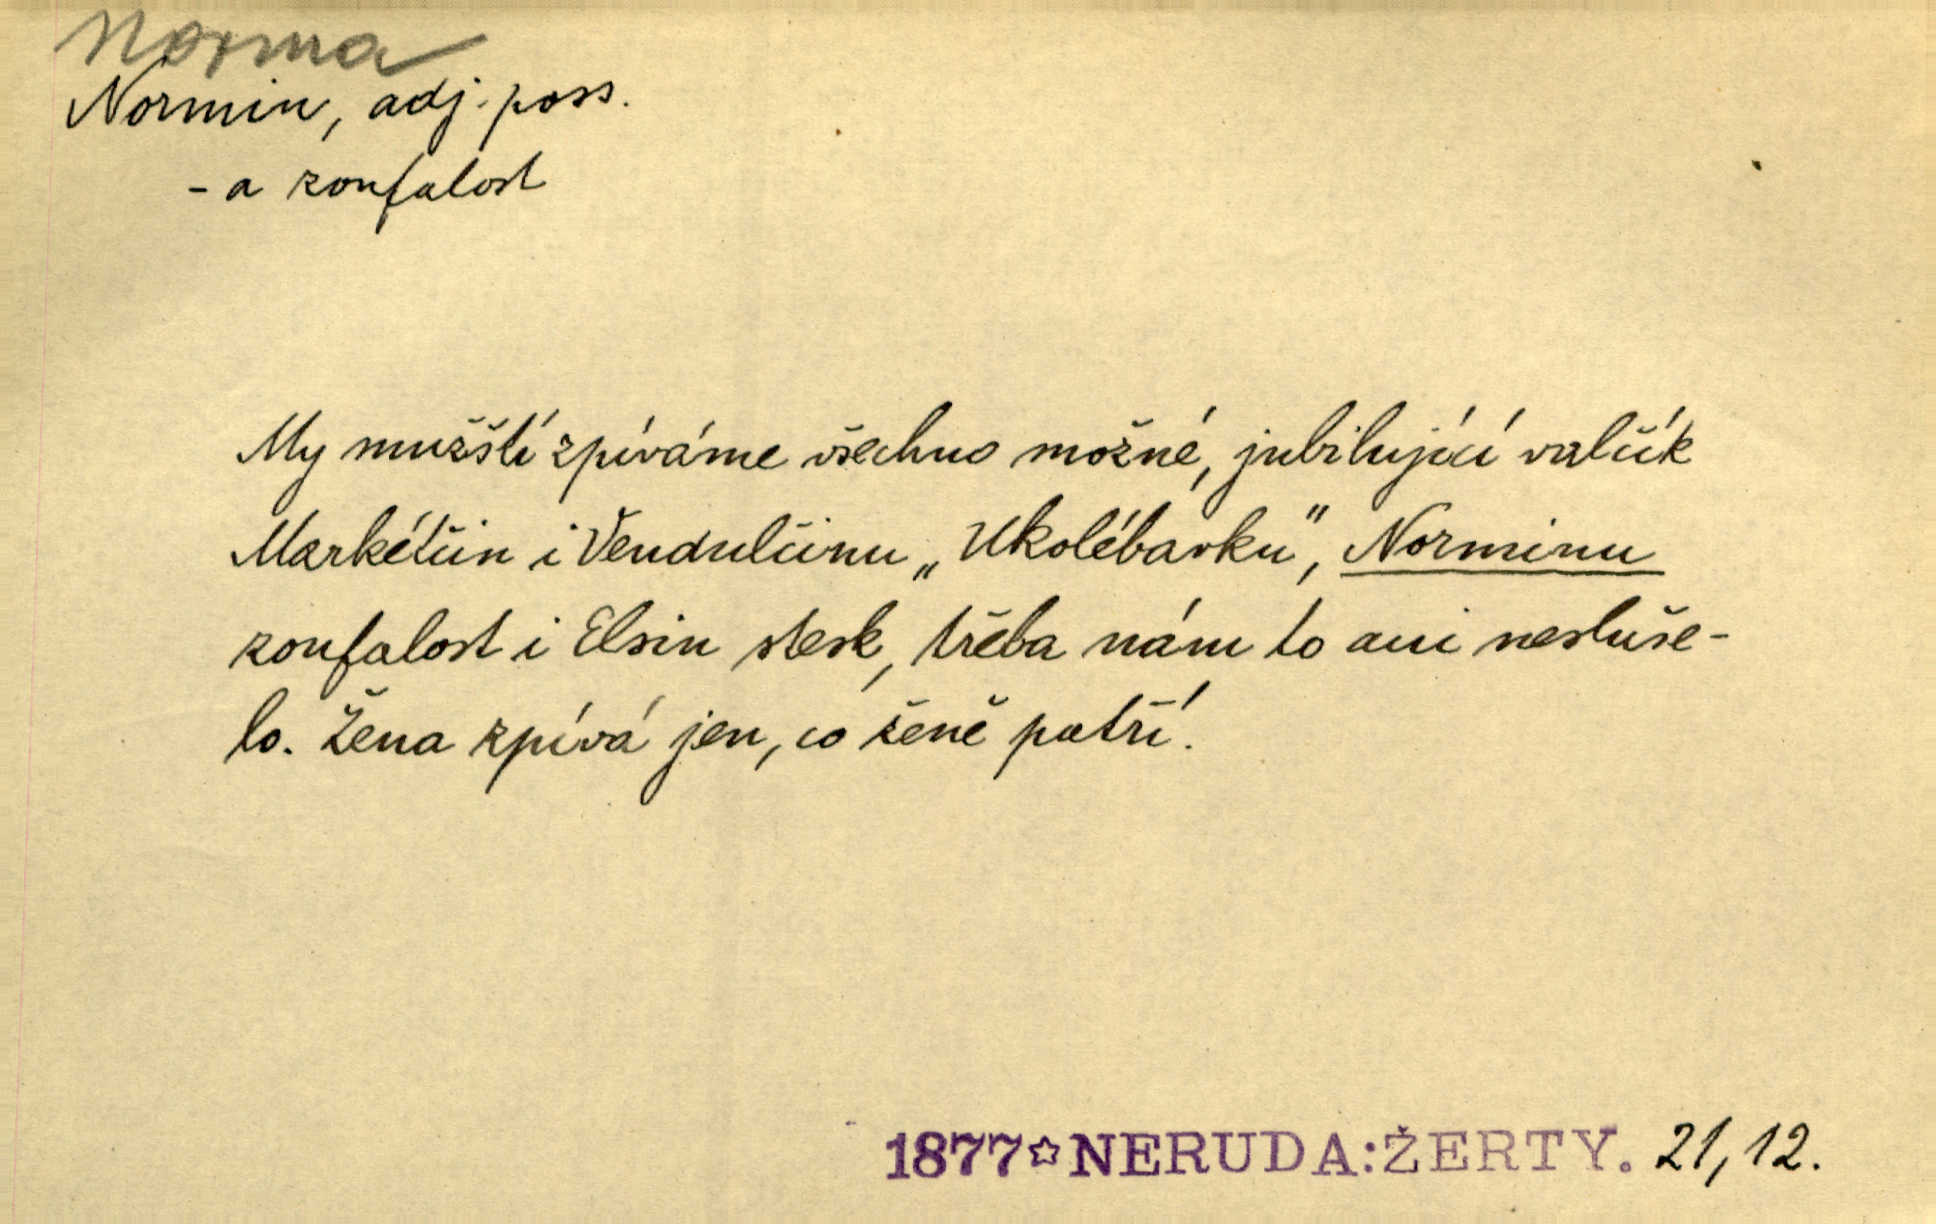 Norma
Normin, adj. poss.
- a zoufalost
My mužští zpíváme všechno možné, jubilující valčík
Markétčin i Vendulčinu „Ukolébavku", Norminu
zoufalost i Elsin stesk, třeba nám to ani nesluše-
lo. Žena zpívá jen, co ženě patří.
1877☆NERUDA:ŽERTY. 21,12.